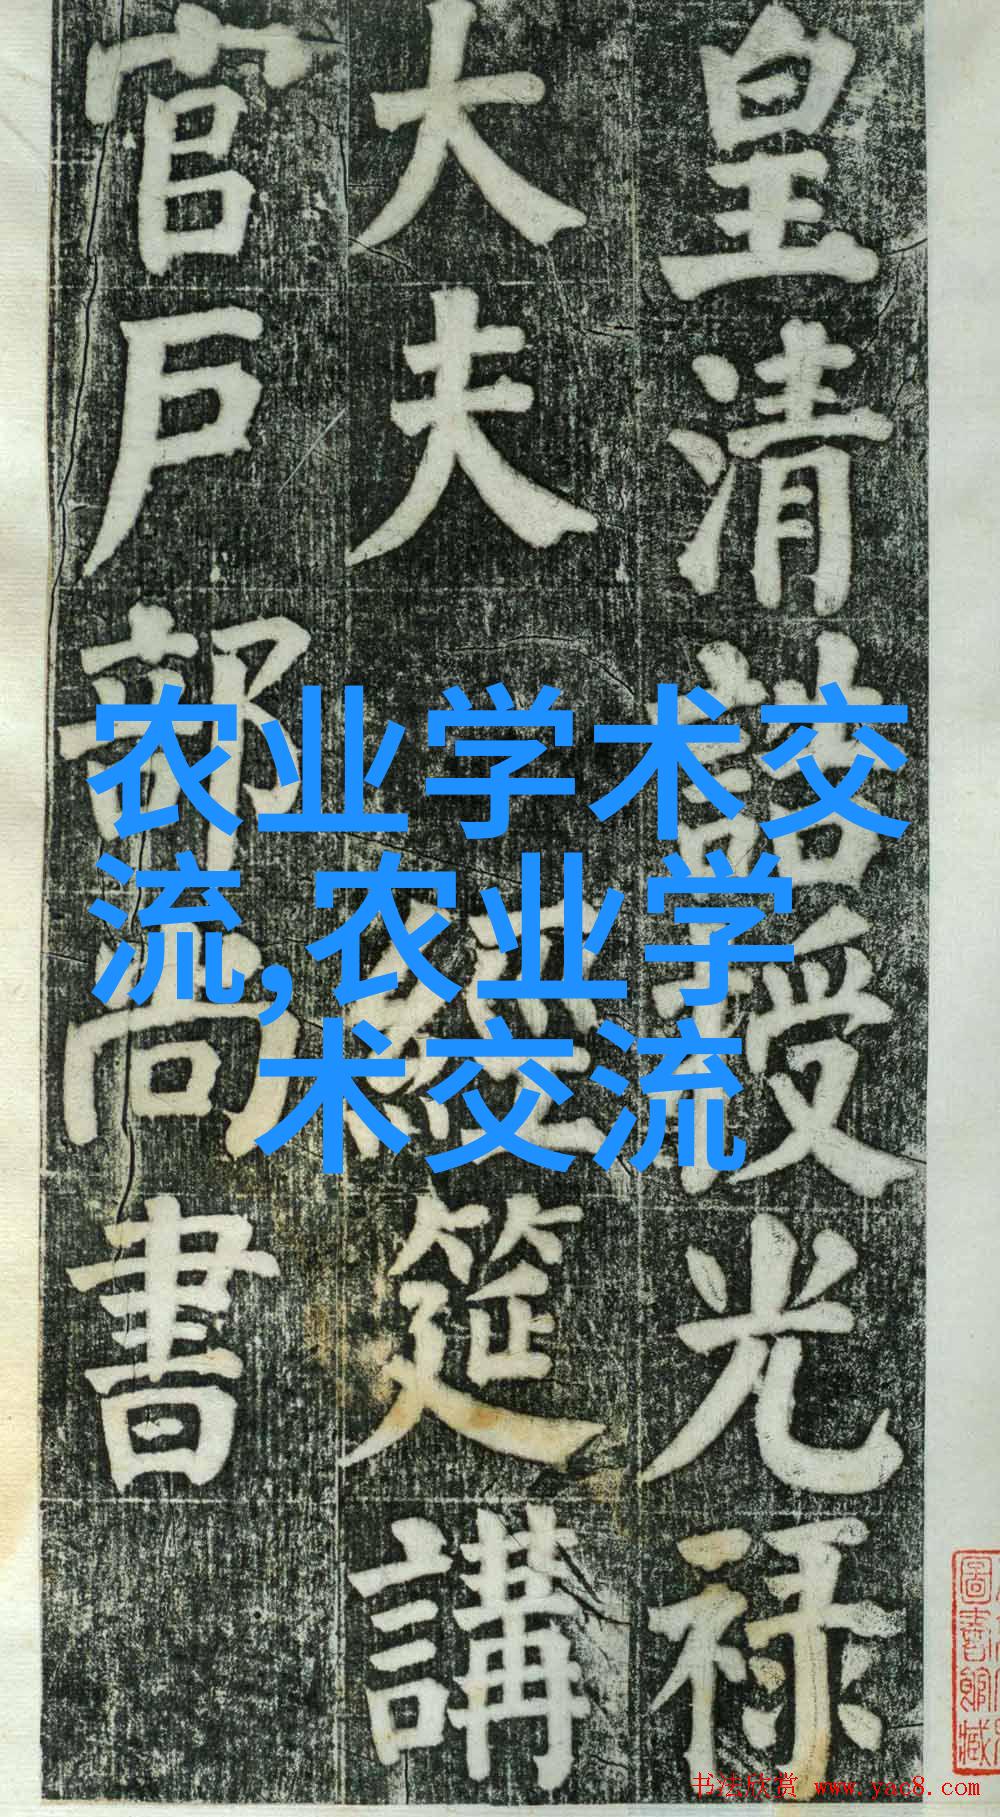 皇清誥授光禄
大夫 經筵講
官戶部尚書
农业学术交
流,农业学
术交流
圖書館藏
书法欣赏 www.yac8.com